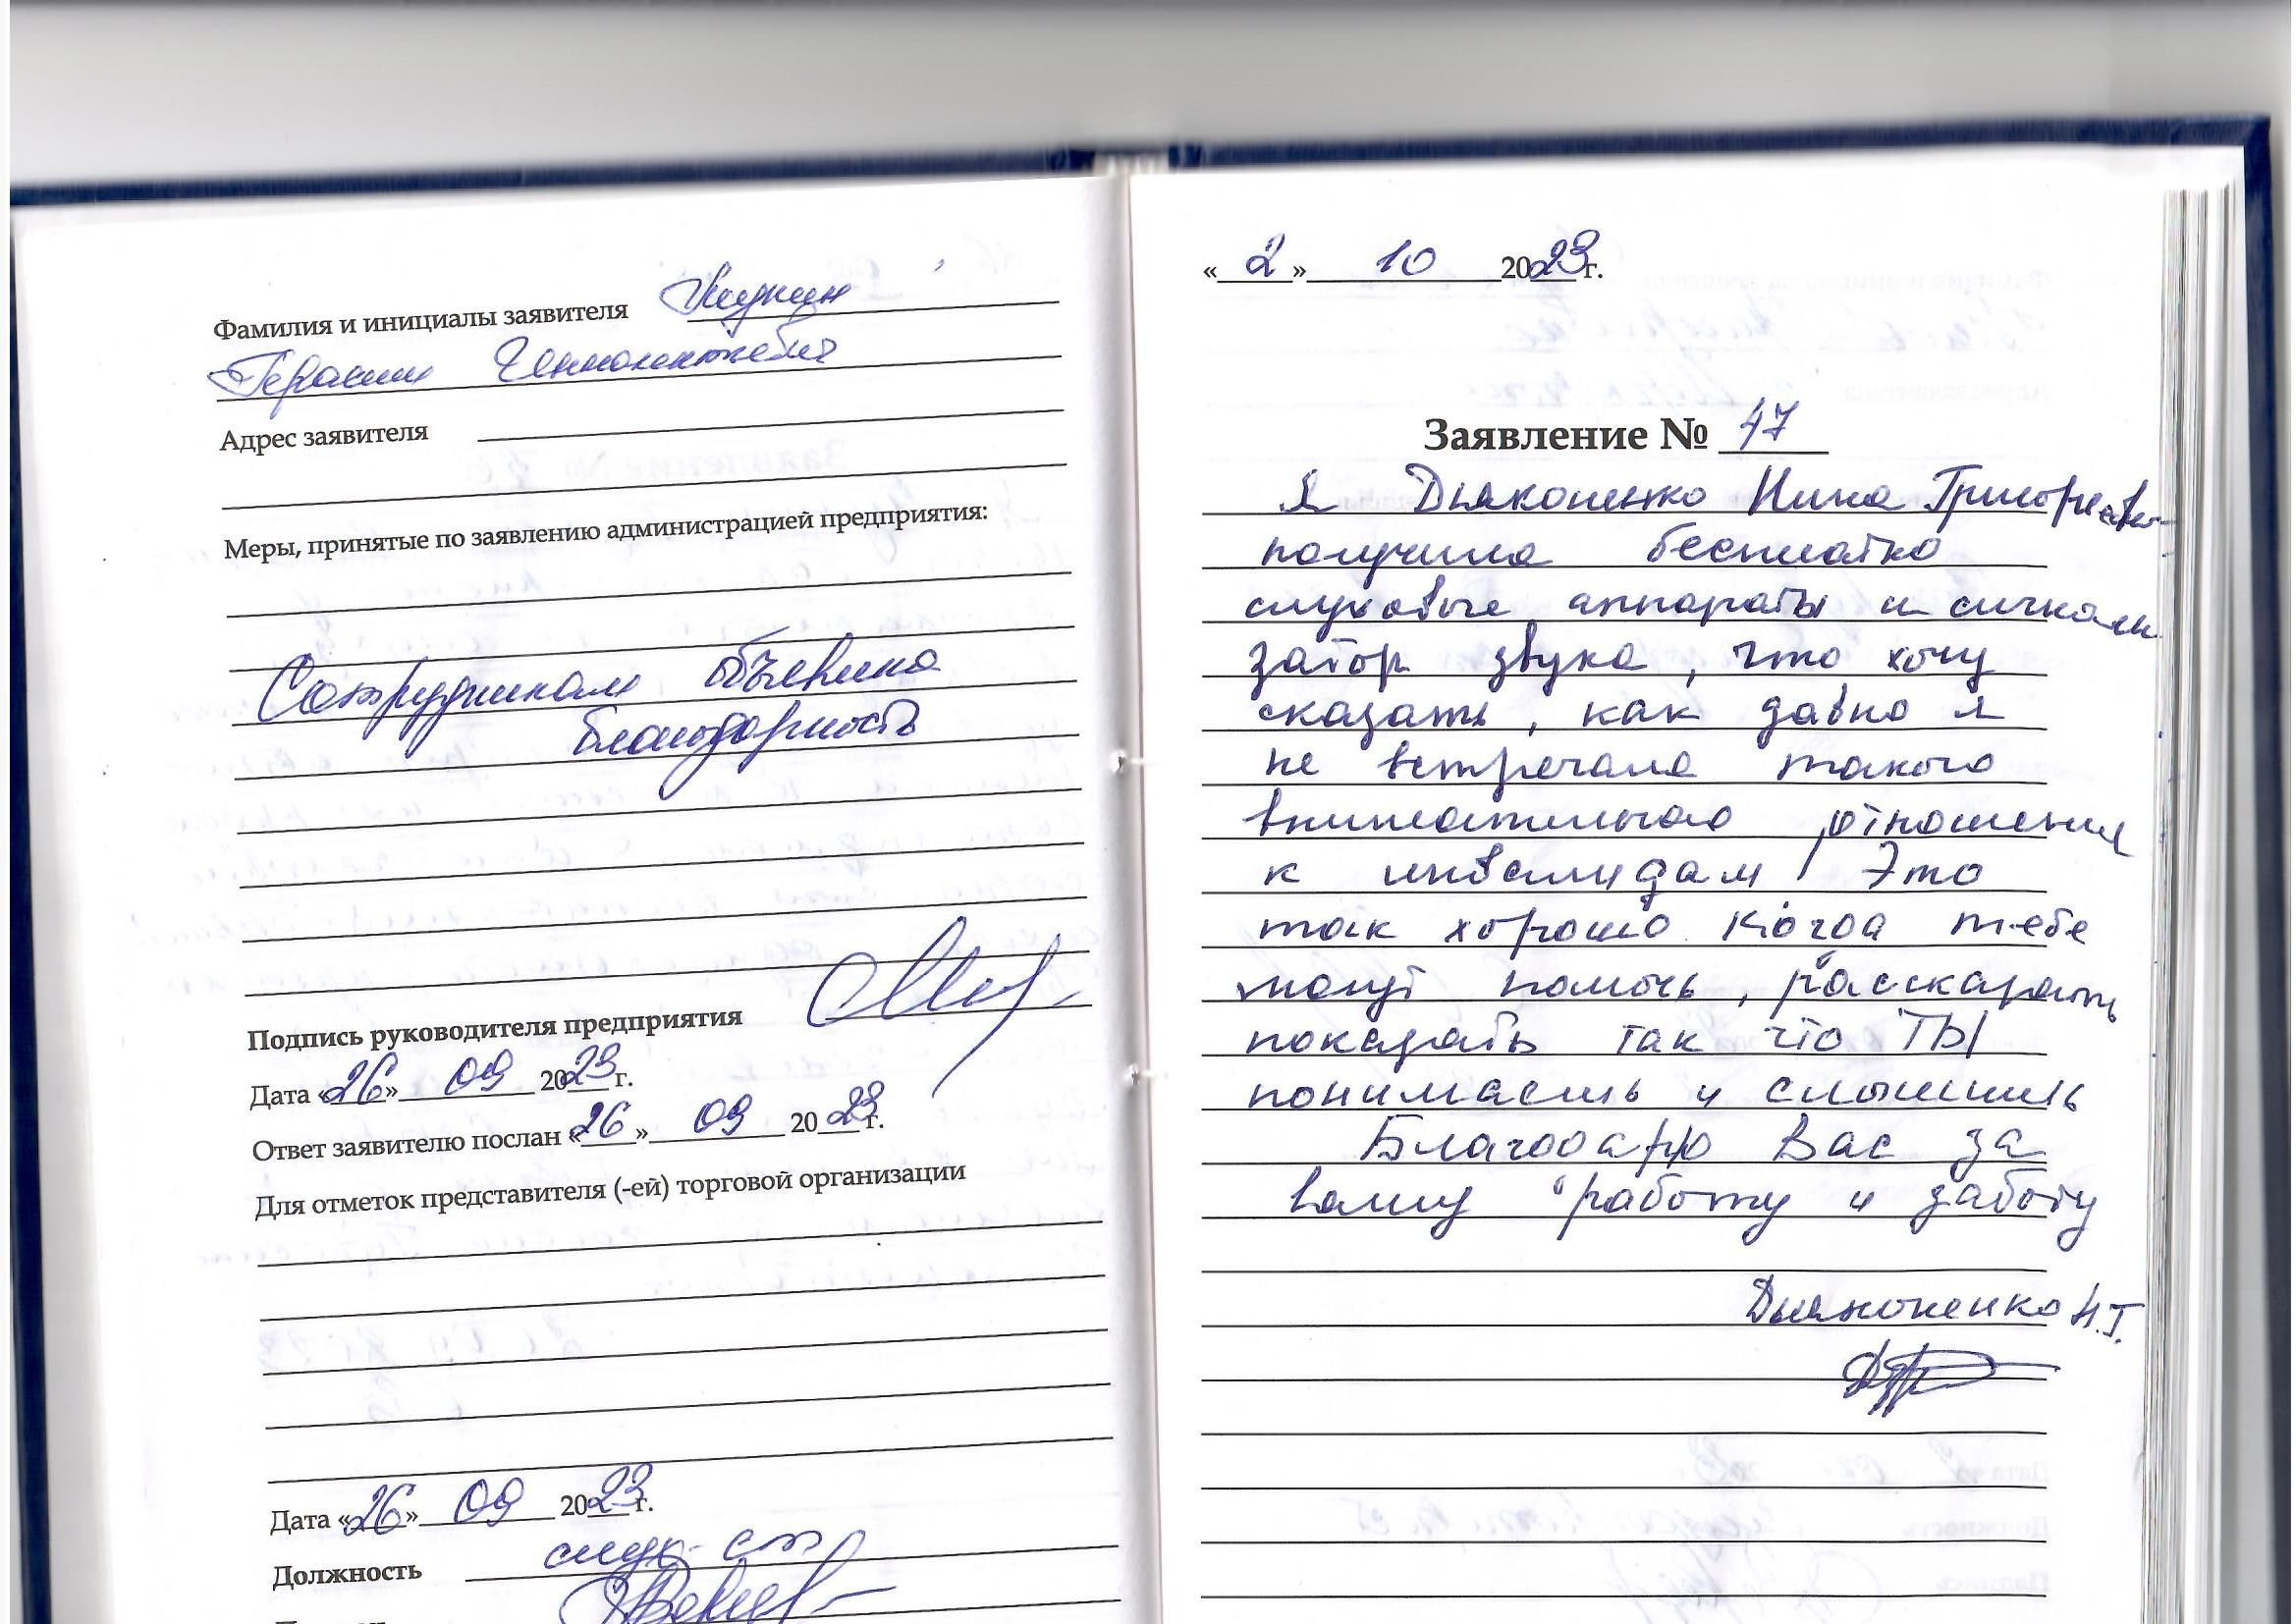 Фамилия и инициалы заявителя
Герасим Иннокентьевич
Адрес заявителя
Меры, принятые по заявлению администрацией предприятия:
Сотрудникам объявлена
благодарность
Подпись руководителя предприятия
Дата «26» 09 2023 г.
Ответ заявителю послан «26» 09 2023 г.
Для отметок представителя (-ей) торговой организации
Дата «26» 09 2023 г.
Должность
«2» 10 2023 г.
Заявление № 47
Я Дьяконенко Нина Григорьевна
получила бесплатно
слуховые аппараты и сигнали
затор звука, что хочу
сказать, как давно я
не встречала такого
внимательного отношения
к инвалидам! Это
так хорошо когда тебе
могут помочь, рассказать
показать так что ТЫ
понимаешь и слышишь
Благодарю Вас за
вашу работу и заботу
Дьяконенко Н.Г.